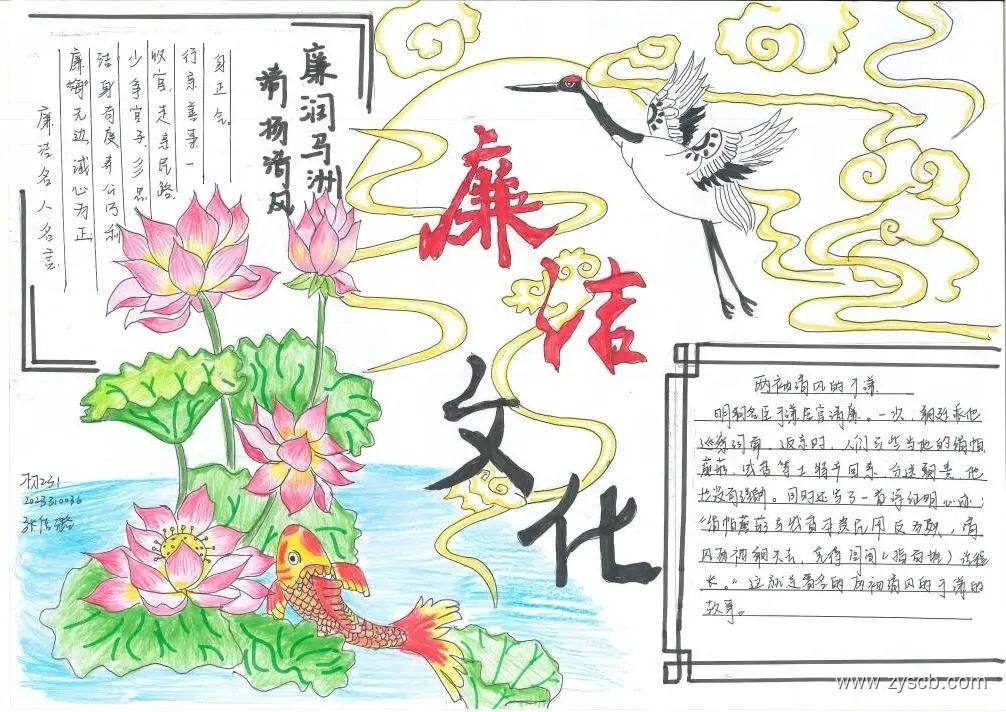 廉洁文化
廉润马洲
清扬清风
身正令。
行亲善事一
收官，走亲民路
少争官子，多
洁身有度弄公乃利
廉御无边，诚心为正
廉洁名人名言
两袖清风的于谦
明朝名臣于谦居官清廉。一次，朝廷派他
巡察河南，返京时，人们买些当地的绢帕
蘑菇，线香等土特产回京，分送朝贵，他
也没有
同时还写了一首诗证明心迹：
"绢帕蘑菇与线香本资民用反为殃，清
风两袖朝天去，免得闾阎（指百姓）话短
长。"这就是著名的两袖清风的于谦的
故事。
2023310036
www.zyscb.com